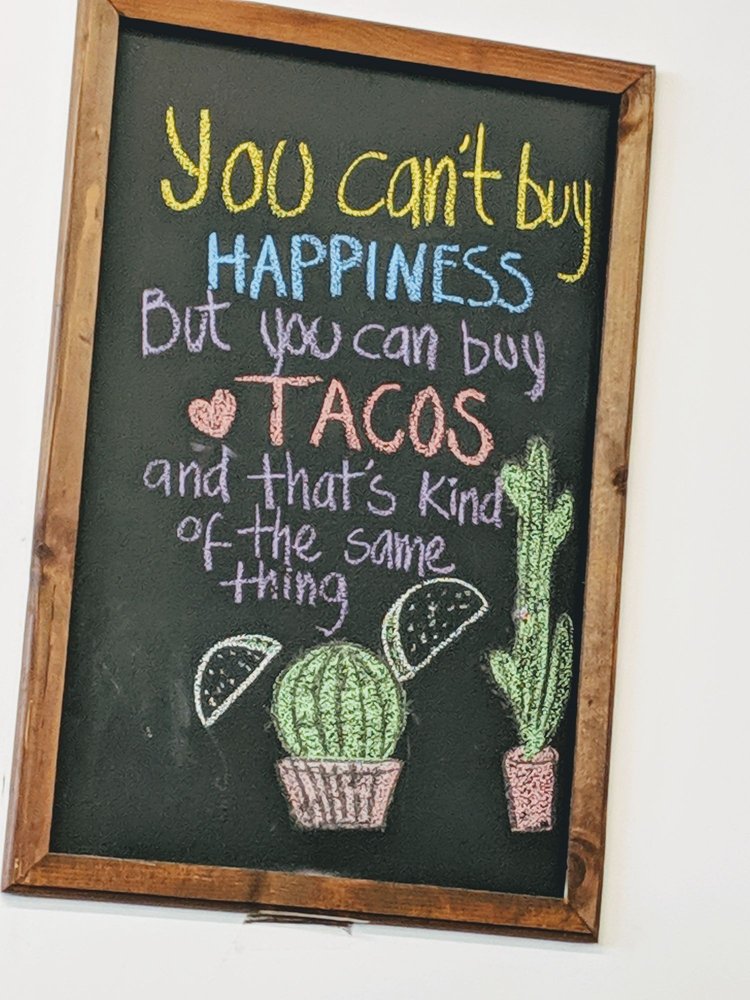 You can't buy
HAPPINESS
But you can buy
TACOS
and that's kind
of the same
thing